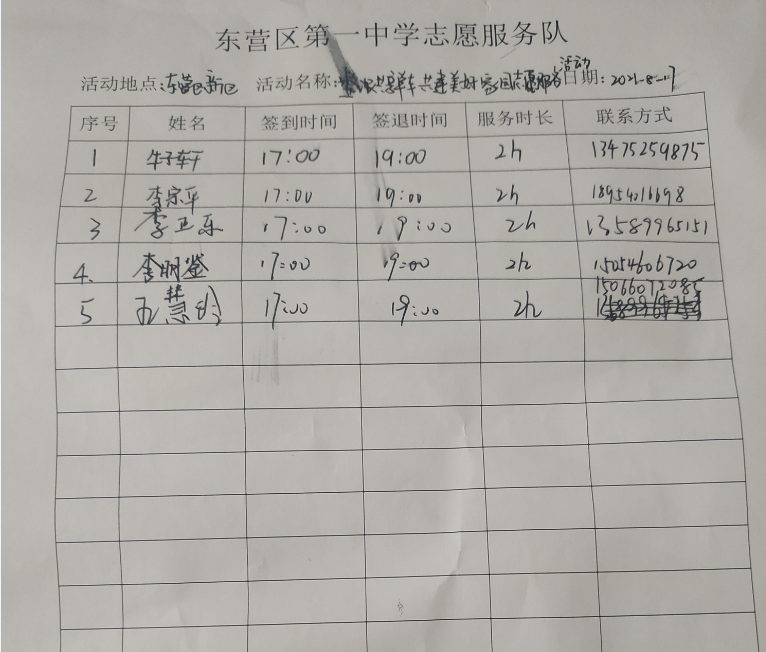 东营区第一中学志愿服务队
活动地点:东营区新区 活动名称:共享单车共建美好家园志愿服务活动 日期:2021-8-17
序号 姓名 签到时间 签退时间 服务时长 联系方式
1 牛子轩 17:00 19:00 2h 13475259875
2 李宗平 17:00 19:00 2h
3 李卫东 17:00 19:00 2h 13589965151
4. 李明鉴 17:00 19:00 2h 15054606720
5 慧玲 17:00 19:00 2h 15066072085